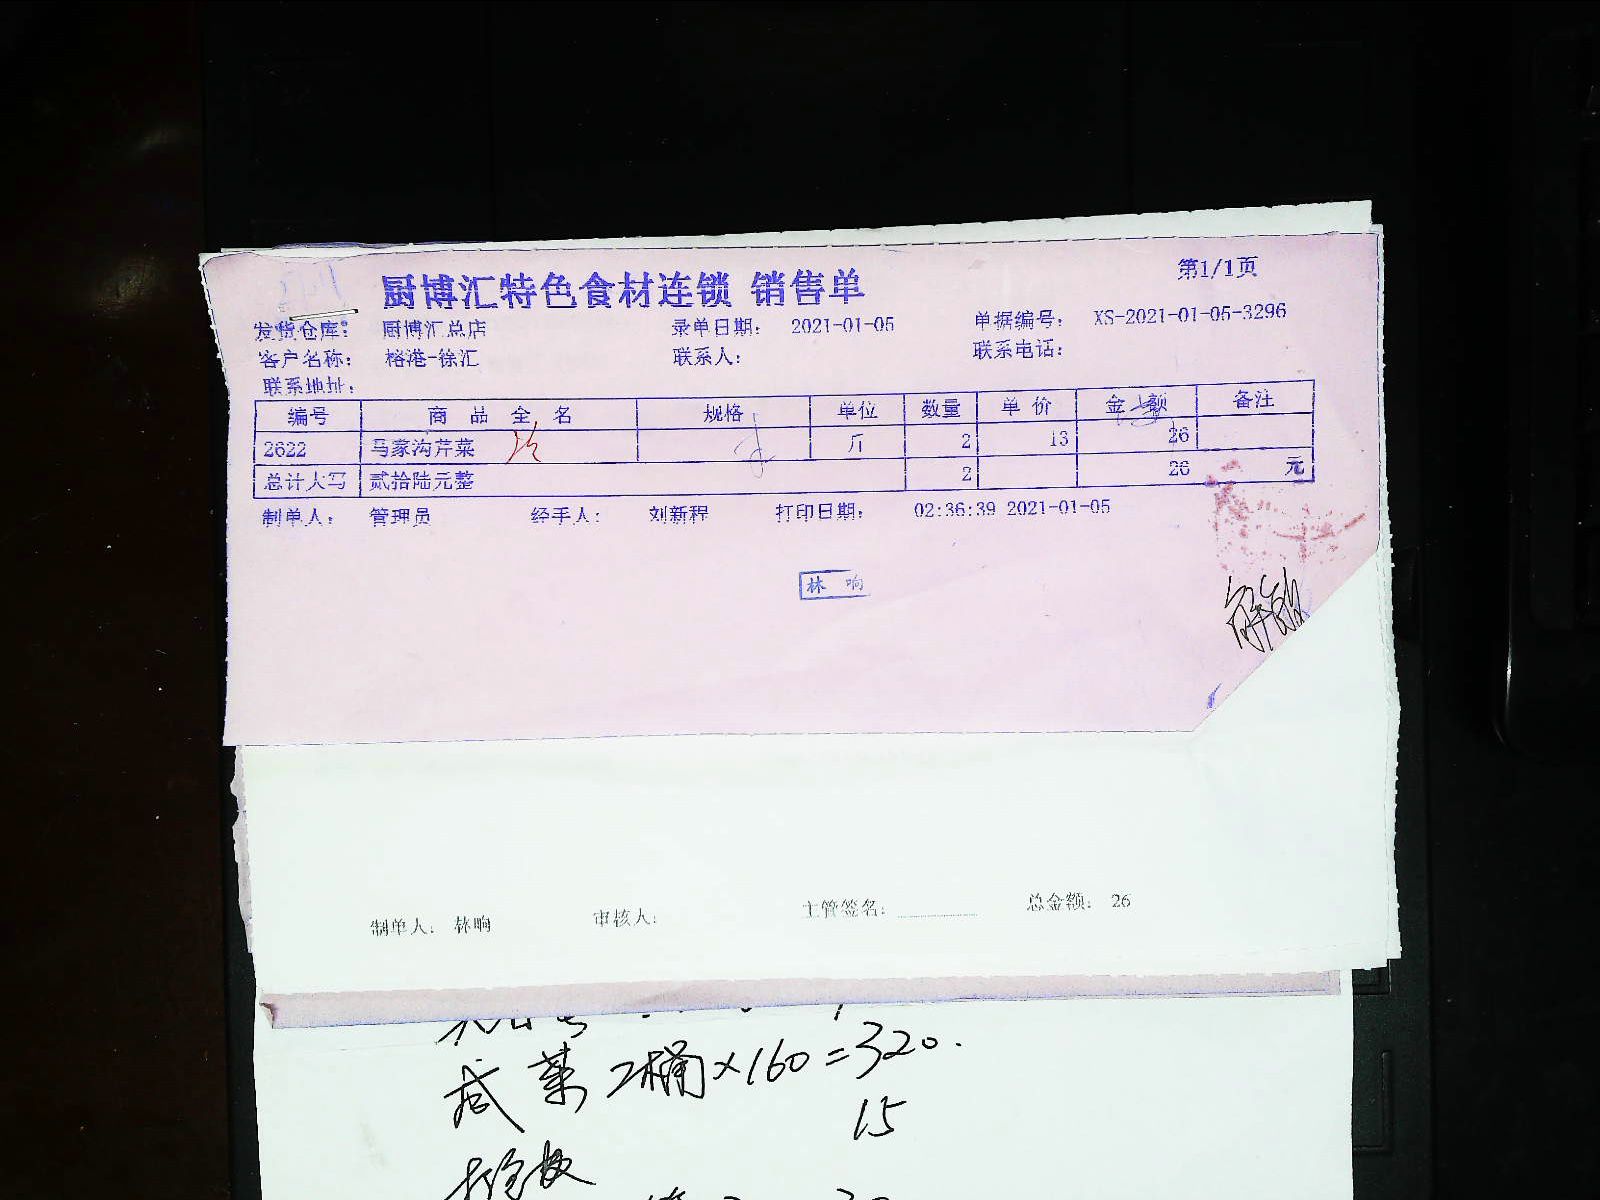 厨博汇特色食材连锁 销售单
第1/1页
发货仓库: 厨博汇总店 录单日期: 2021-01-05 单据编号: XS-2021-01-05-3296
客户名称: 榕港-徐汇 联系人: 联系电话:
联系地址:
编号 商品全名 规格 单位 数量 单价 金额 备注
2622 马家沟芹菜 斤 2 13 26
总计大写 贰拾陆元整 2 26 元
制单人: 管理员 经手人: 刘新程 打印日期: 02:36:39 2021-01-05
林 响
制单人: 林响 审核人: 主管签名: 总金额: 26
咸菜 2桶×160=320.
15